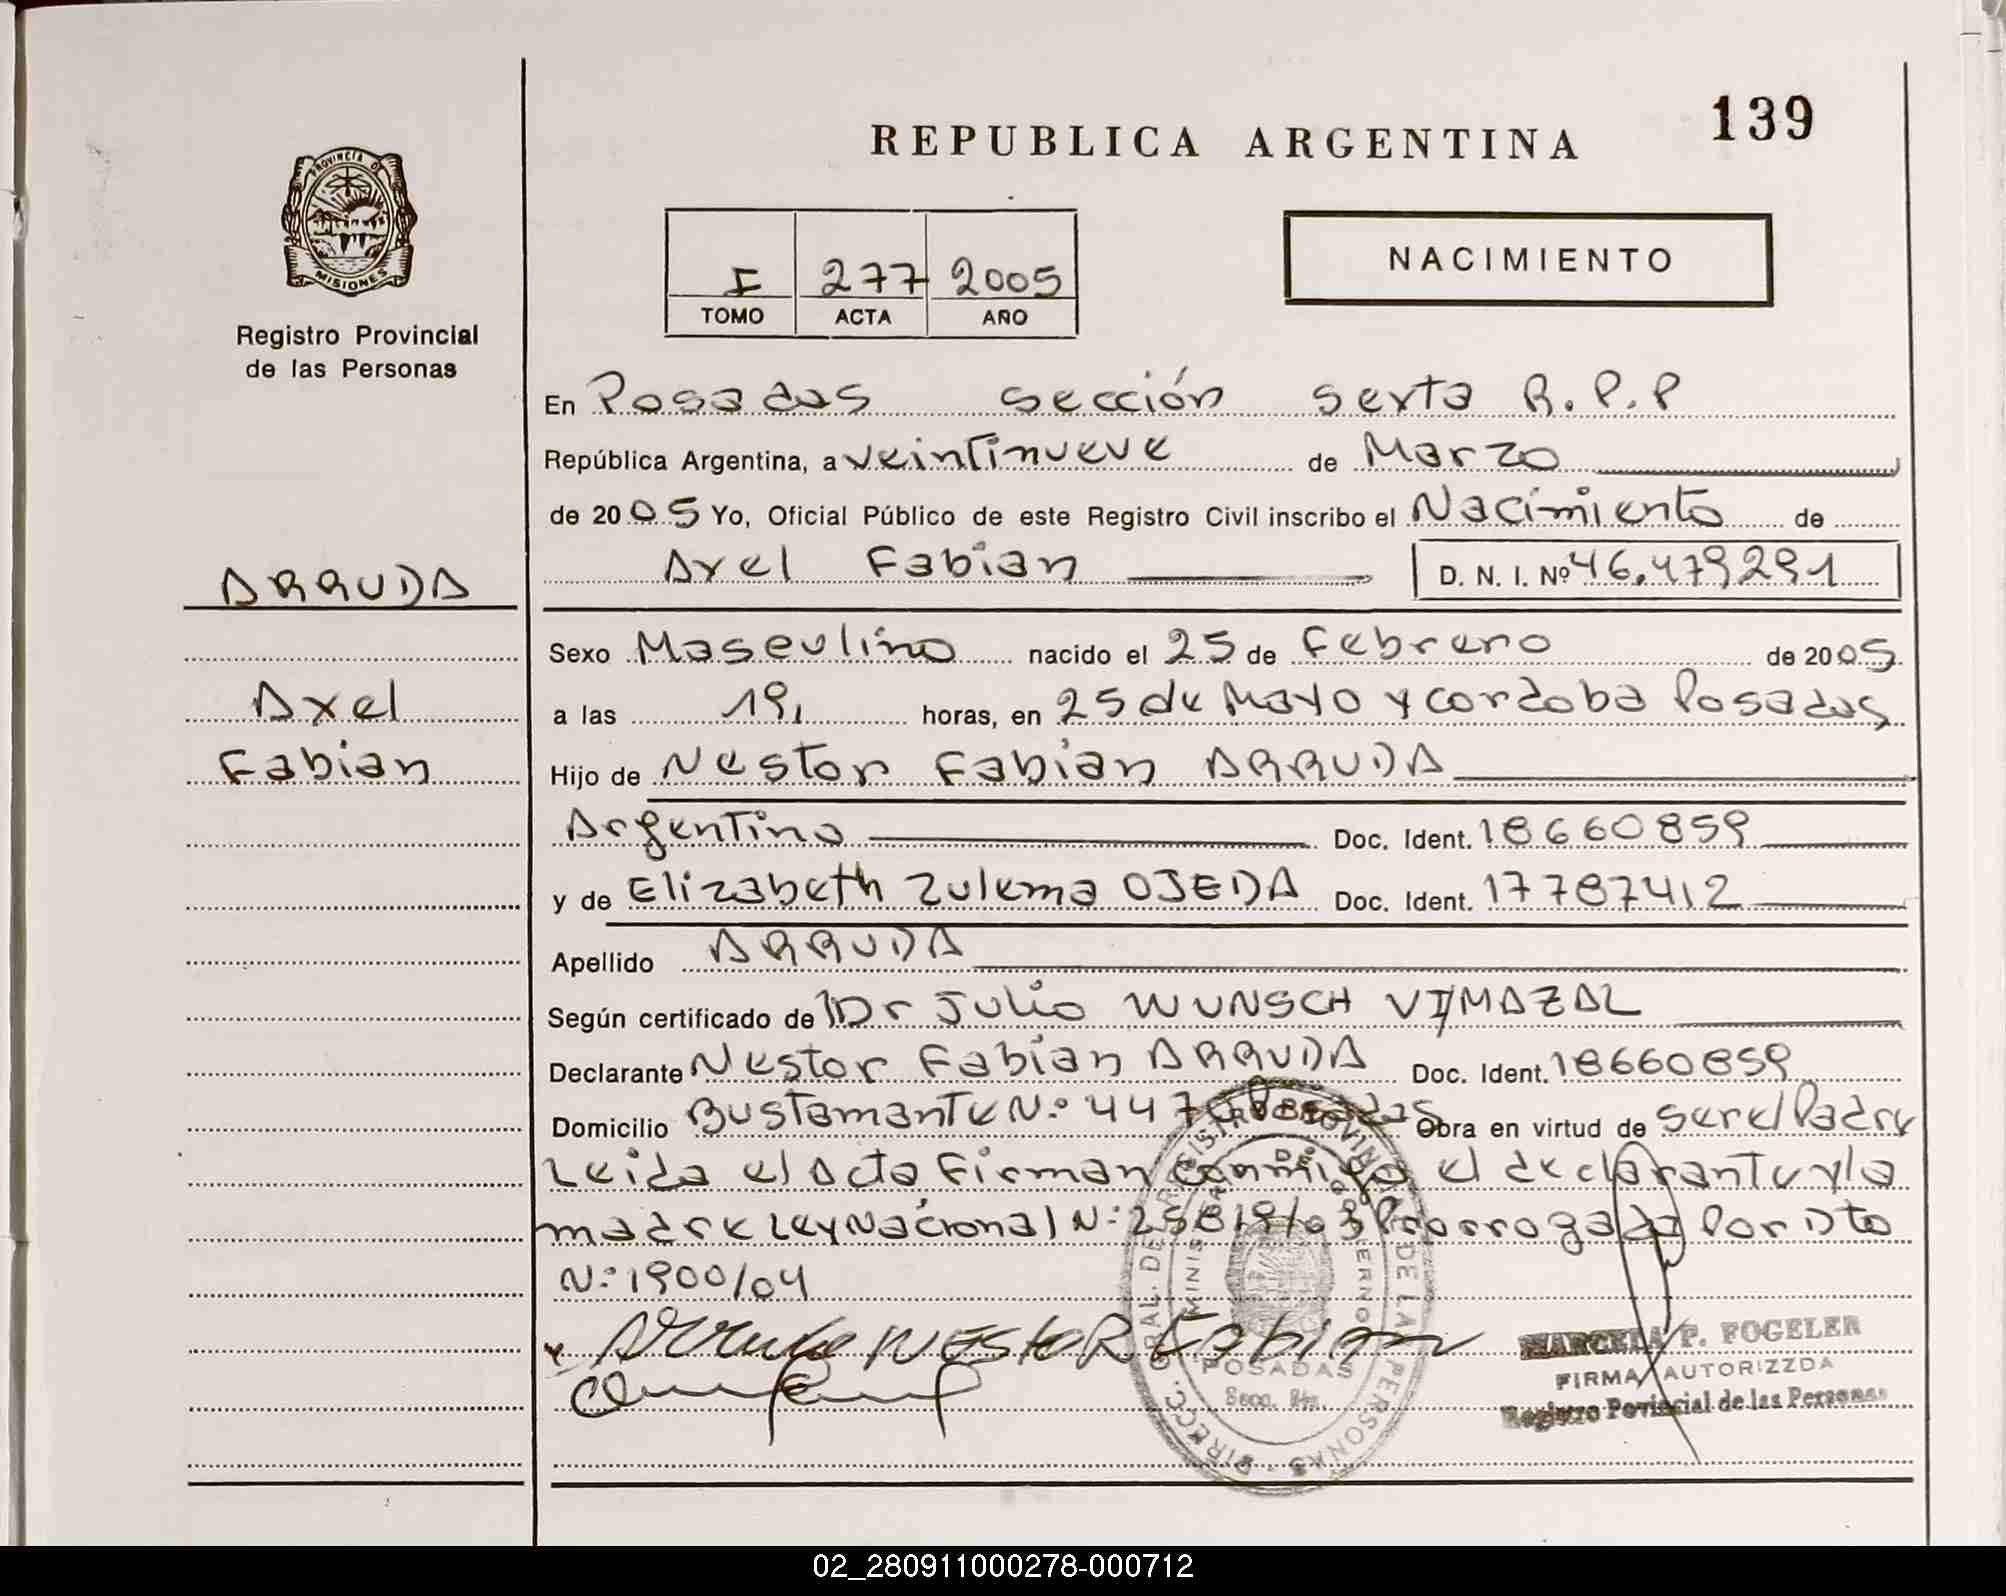 REPUBLICA ARGENTINA
139
PROVINCIA DE
MISIONES
Registro Provincial
de las Personas
I 277 2005
TOMO ACTA AÑO
NACIMIENTO
En Posadas sección sexta R.P.P
República Argentina, a veintinueve de Marzo
de 2005 Yo, Oficial Público de este Registro Civil inscribo el Nacimiento de
Axel Fabian D. N. I. Nº 46.479291
ARRUDA
Axel
Fabian
Sexo Masculino nacido el 25 de Febrero de 2005
a las 19, horas, en 25 de Mayo y cordoba Posadas
Hijo de Nestor Fabian ARRUDA
Argentino Doc. Ident. 18660859
y de Elizabeth Zulema OJEDA Doc. Ident. 17787412
Apellido ARRUDA
Según certificado de Dr Julio WUNSCH
Declarante Nestor Fabian ARRUDA Doc. Ident. 18660859
Domicilio Bustamante N:º 447 Posadas Obra en virtud de ser el Padre
Leida el Acta Firman conmigo el declarante y la
madre Ley Nacional N:º 25819/03 Prorrogada Por Dto
N:º 1900/04
Arruda NESTOR Fabian
DIRECC. GRAL. DE REGISTRO PROVINCIAL DE LAS PERSONAS
POSADAS
MARCELA P. FOGELER
FIRMA AUTORIZZDA
Registro Povincial de las Personas
02_280911000278-000712